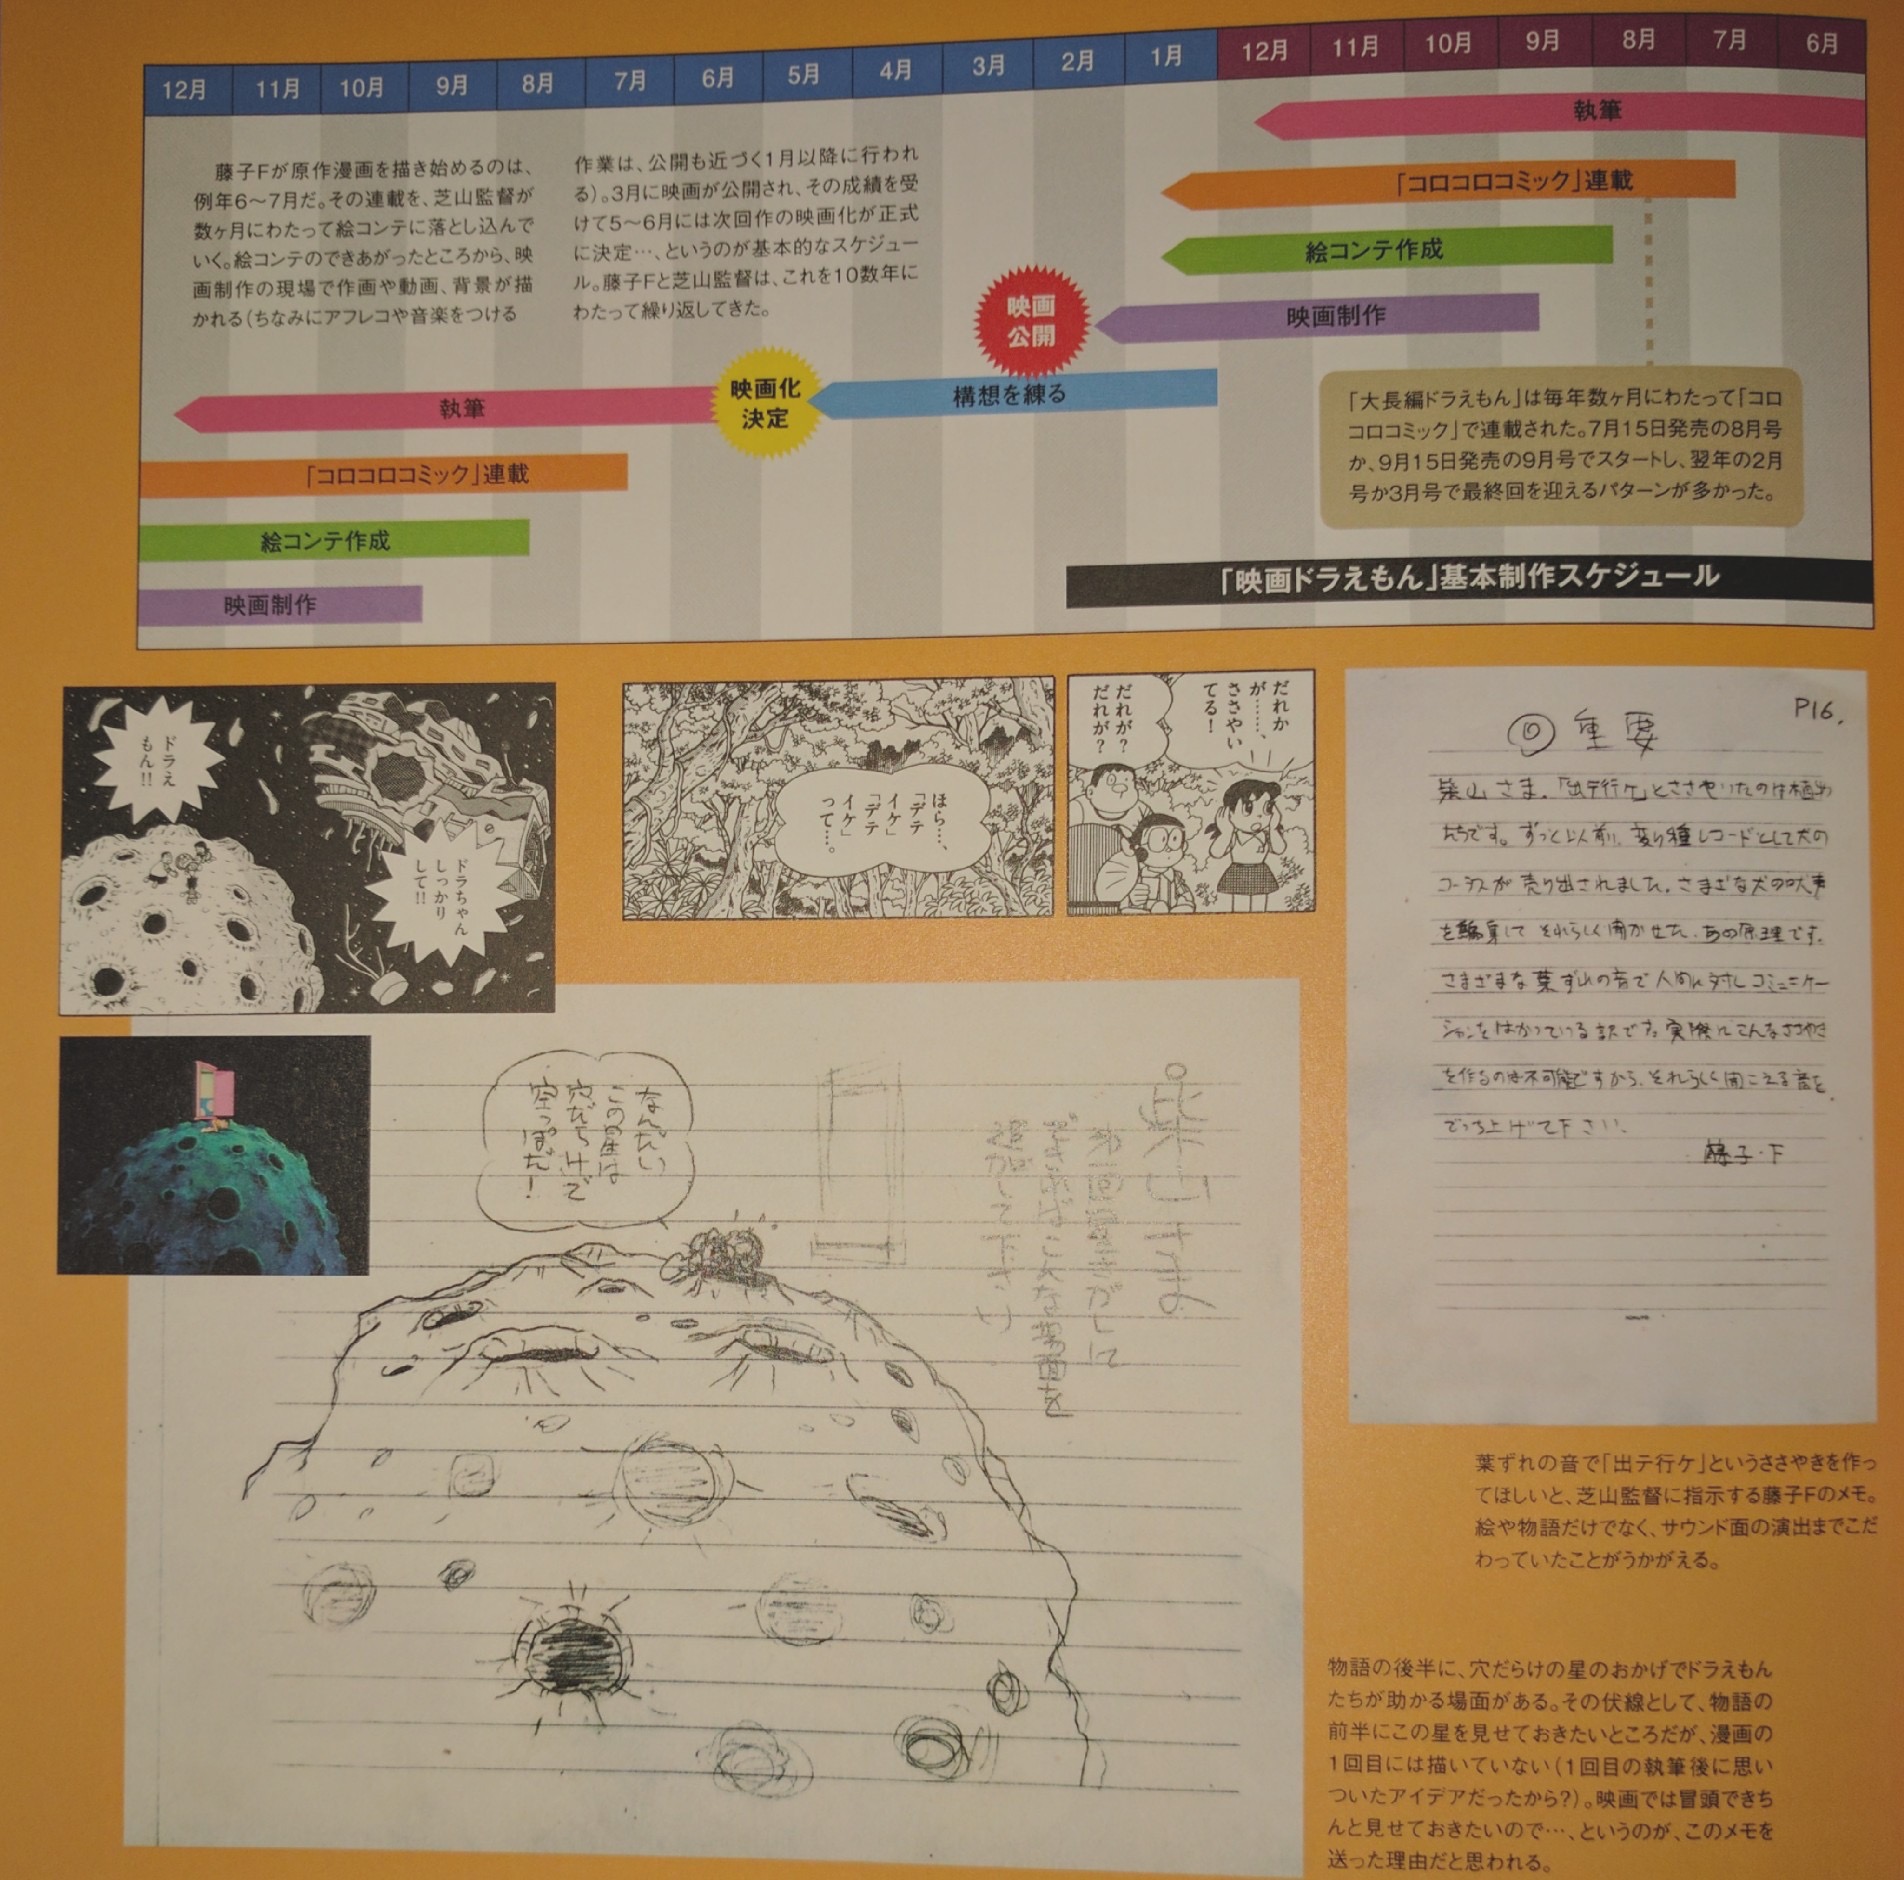 12月 11月 10月 9月 8月 7月 6月 5月 4月 3月 2月 1月 12月 11月 10月 9月 8月 7月 6月
執筆
「コロコロコミック」連載
絵コンテ作成
映画制作
映画
公開
構想を練る
映画化
決定
執筆
「コロコロコミック」連載
絵コンテ作成
映画制作
藤子Fが原作漫画を描き始めるのは、
例年6〜7月だ。その連載を、芝山監督が
数ヶ月にわたって絵コンテに落とし込んで
いく。絵コンテのできあがったところから、映
画制作の現場で作画や動画、背景が描
かれる(ちなみにアフレコや音楽をつける
作業は、公開も近づく1月以降に行われ
る)。3月に映画が公開され、その成績を受
けて5〜6月には次回作の映画化が正式
に決定…、というのが基本的なスケジュー
ル。藤子Fと芝山監督は、これを10数年に
わたって繰り返してきた。
「大長編ドラえもん」は毎年数ヶ月にわたって「コロ
コロコミック」で連載された。7月15日発売の8月号
か、9月15日発売の9月号でスタートし、翌年の2月
号か3月号で最終回を迎えるパターンが多かった。
「映画ドラえもん」基本制作スケジュール
ドラえ
もん!!
ドラちゃん
しっかり
して!!
だれか
が……、
ささやい
てる!
だれが?
だれが?
ほら…、
「デテ
イケ」
「デテ
イケ」
って…。
P16.
◎重要
柴山さま.「出テ行ケ」とささやいたのは植物
たちです。ずっと以前、変り種レコードとして犬の
コーラスが売り出されました。さまざまな犬の吠声
を編集して それらしく聞かせた.あの原理です.
さまざまな葉ずれの音で人間に対しコミュニケー
ションをはかっている訳です。実際にこんなささやき
を作るのは不可能ですから、それらしく聞こえる音を
でっち上げて下さい.
藤子・F
柴山さま
このような場面を
追加して下さい
なんだい
この星は
穴だらけで
空っぽだ!
葉ずれの音で「出テ行ケ」というささやきを作っ
てほしいと、芝山監督に指示する藤子Fのメモ。
絵や物語だけでなく、サウンド面の演出までこだ
わっていたことがうかがえる。
物語の後半に、穴だらけの星のおかげでドラえもん
たちが助かる場面がある。その伏線として、物語の
前半にこの星を見せておきたいところだが、漫画の
1回目には描いていない(1回目の執筆後に思い
ついたアイデアだったから?)。映画では冒頭できち
んと見せておきたいので…、というのが、このメモを
送った理由だと思われる。